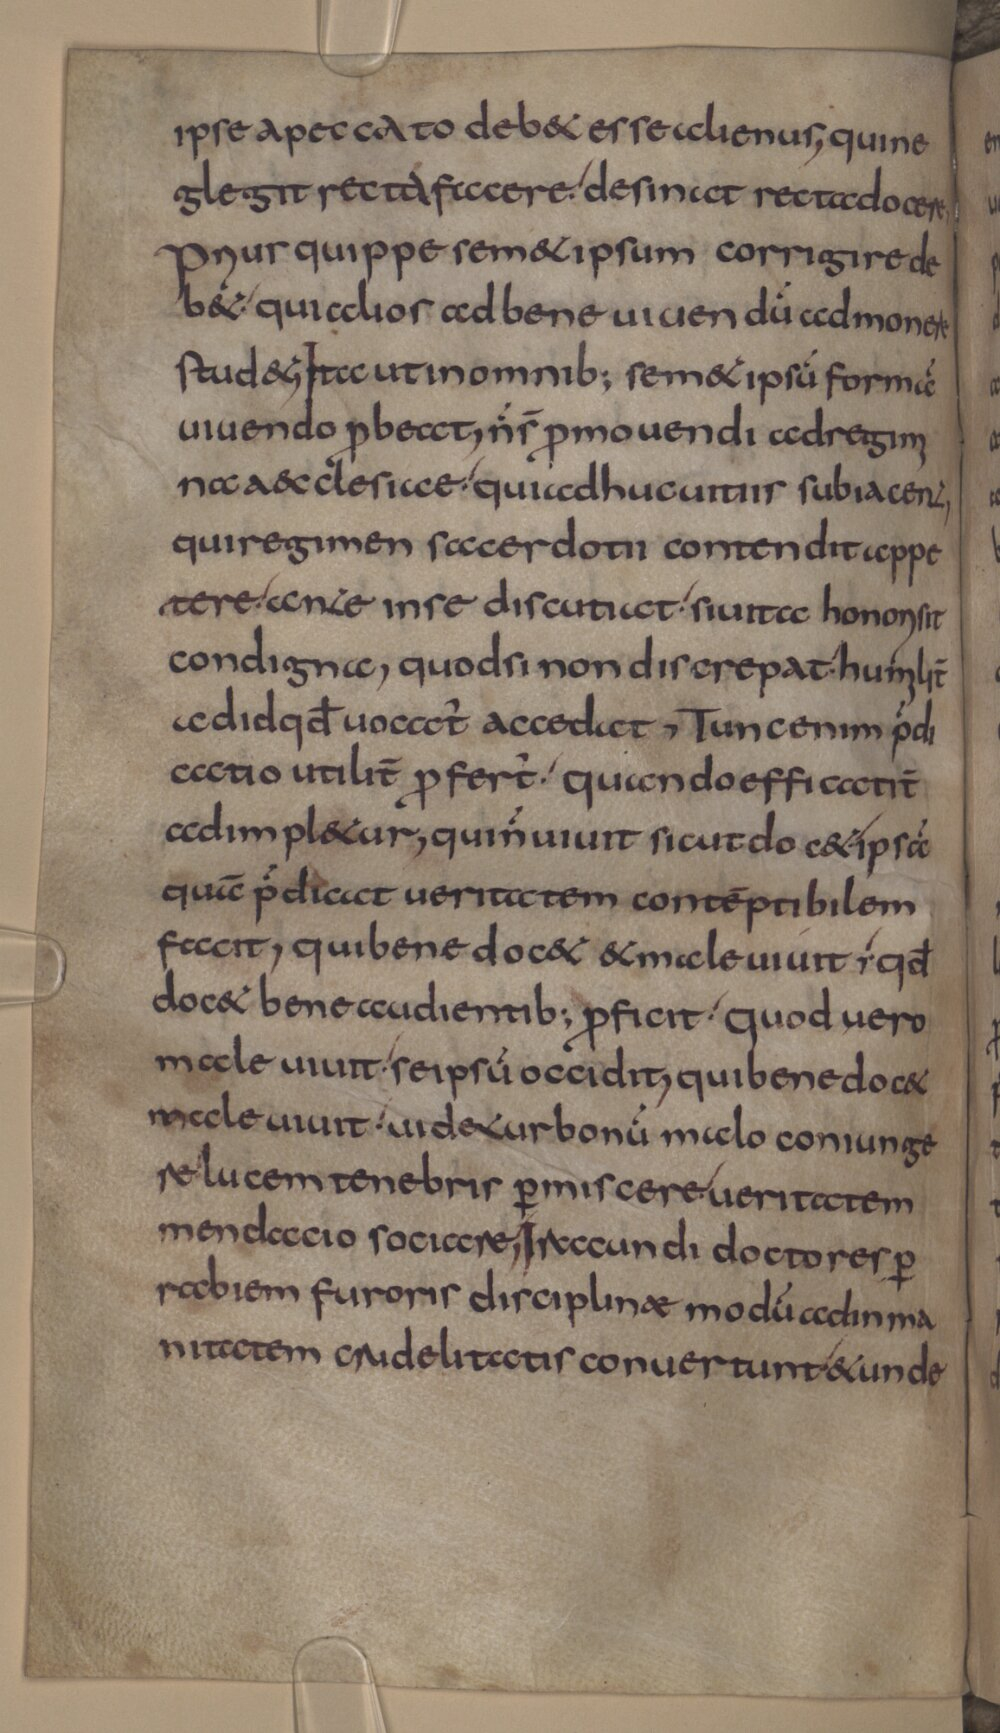 ipse a peccato deb& esse alienus, qui ne
glegit recta facere. desinat recta docere,
Prius quippe sem&ipsum corrigire de
b&. qui alios ad bene uiuendū admonere
stud&, Ita ut in omnib; sem&ipsū formā
uiuendo p̱beat, ñs p̱mouendi ad regimi
na aecclesiae. qui adhuc uitiis subiacent,
qui regimen sacerdotii contendit appe
tere. ante in se discutiat. si uita honori sit
condigna, quod si non discrepat. humilit̄
ad id qđ uocat̄ accedat, Tunc enim p̄di
catio utilit̄ p̱fert̄. Quando efficacit̄
adimpl&ur, qui ñ uiuit sicut doc& ipsā
quā p̄dicat ueritatem contēptibilem
facit, qui bene doc& & male uiuit r̄ qđ
doc& bene audientib; p̱ficit. Quod uero
male uiuit. se ipsū occidit, qui bene doc&
male uiuit. uidetur bonū malo coniunge
re lucem tenebris ꝑmiscere ueritatem
mendacio sociare, Iracundi doctores ꝑ
rabiem furoris disciplinæ modū ad inma
nitatem crudelitatis conuertunt & unde